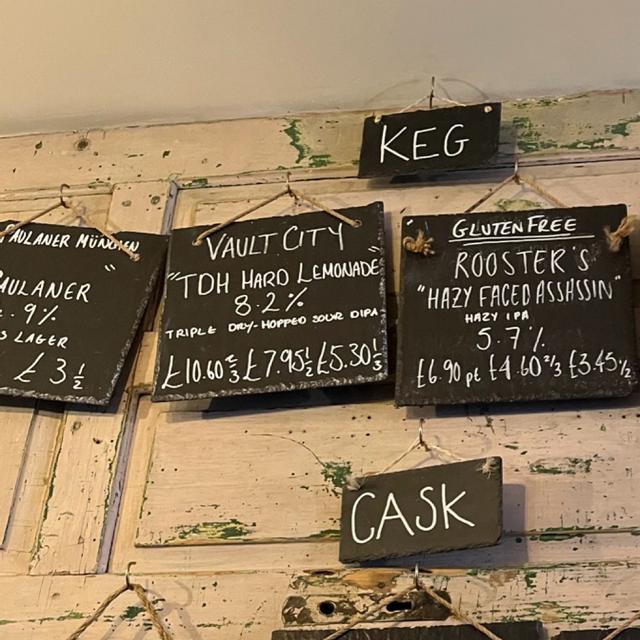 KEG
PAULANER MÜNCHEN
PAULANER
.9%
LAGER
£3 ½
VAULT CITY
"TDH HARD LEMONADE"
8.2%
TRIPLE DRY-HOPPED SOUR DIPA
£10.60 ⅔ £7.95 ½ £5.30 ⅓
GLUTEN FREE
ROOSTER'S
"HAZY FACED ASSASSIN"
HAZY IPA
5.7%
£6.90 pt £4.60 ⅔ £3.45 ½
CASK